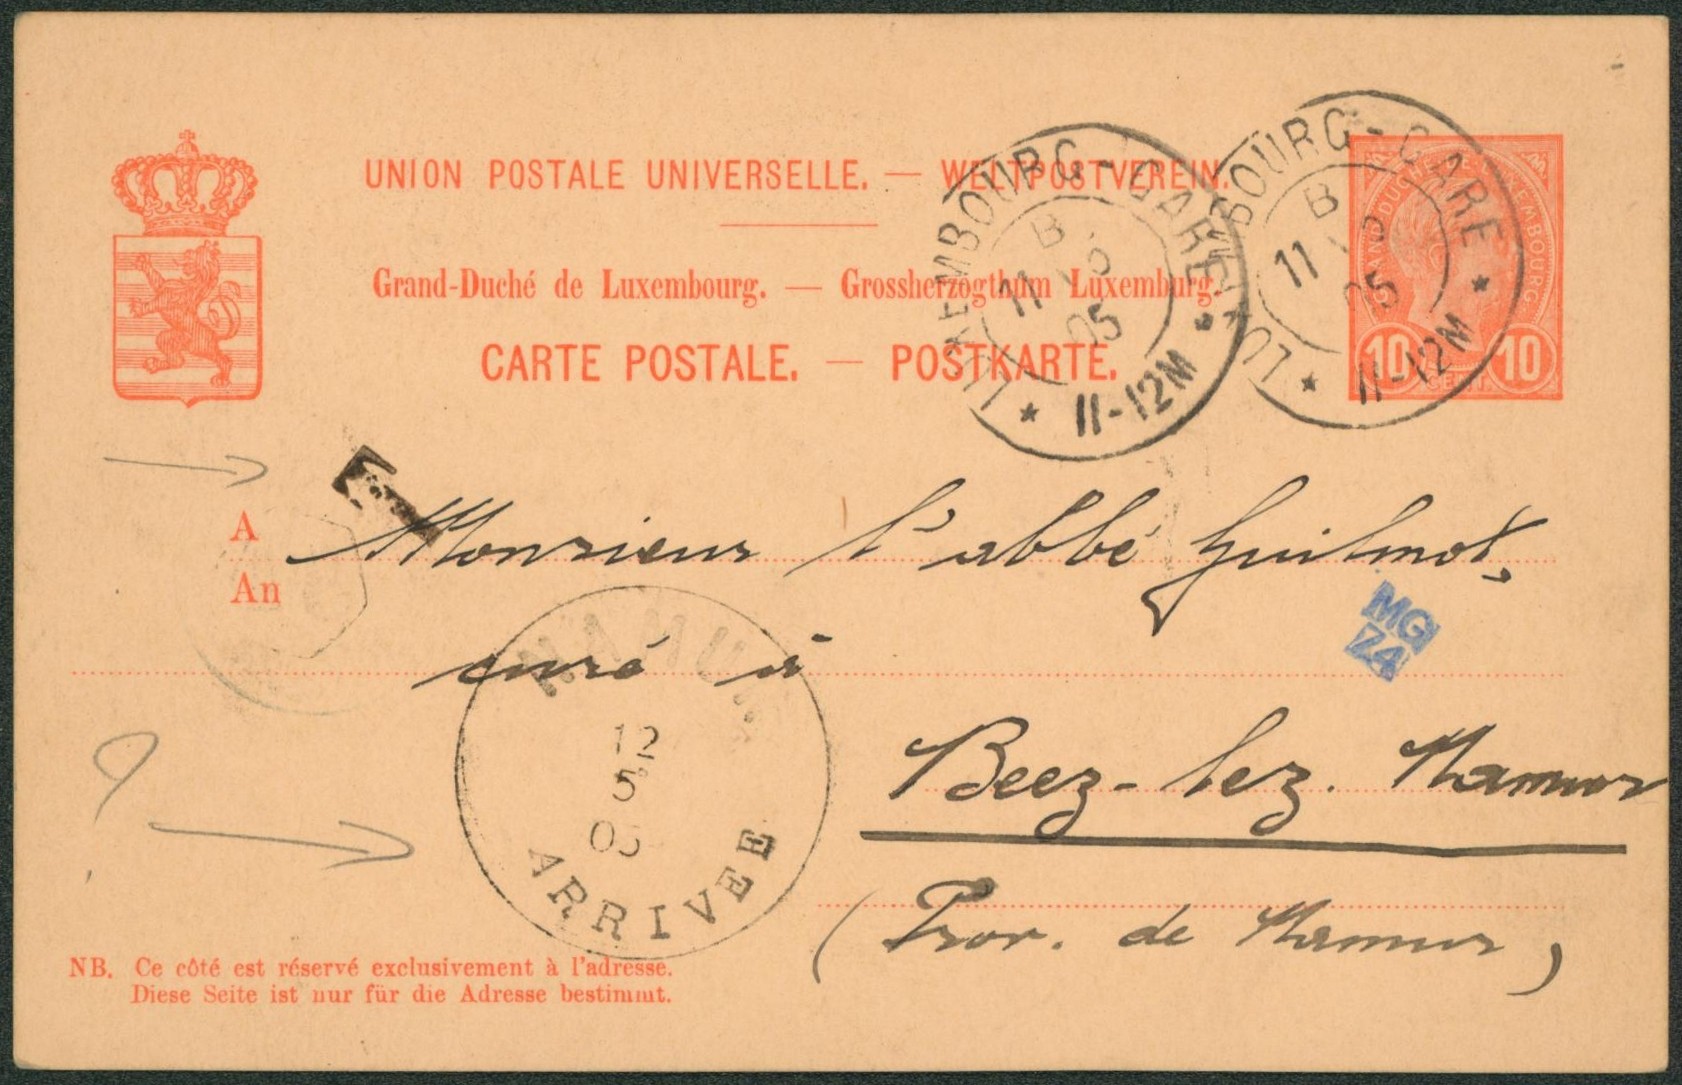 UNION POSTALE UNIVERSELLE. — WELTPOSTVEREIN.
Grand-Duché de Luxembourg. — Grossherzogthum Luxemburg.
CARTE POSTALE. — POSTKARTE.
LUXEMBOURG-GARE
B
11 5
05
11-12M
LUXEMBOURG-GARE
B
11 5
05
11-12M
GRAND DUCHÉ DE LUXEMBOURG
10 CENT. 10
T
A Monsieur l'abbé Guilmot,
An
MG
74
curé à
NAMUR
12
5
05
ARRIVEE
Beez-lez-Namur
(Prov. de Namur)
NB. Ce côté est réservé exclusivement à l'adresse.
Diese Seite ist nur für die Adresse bestimmt.